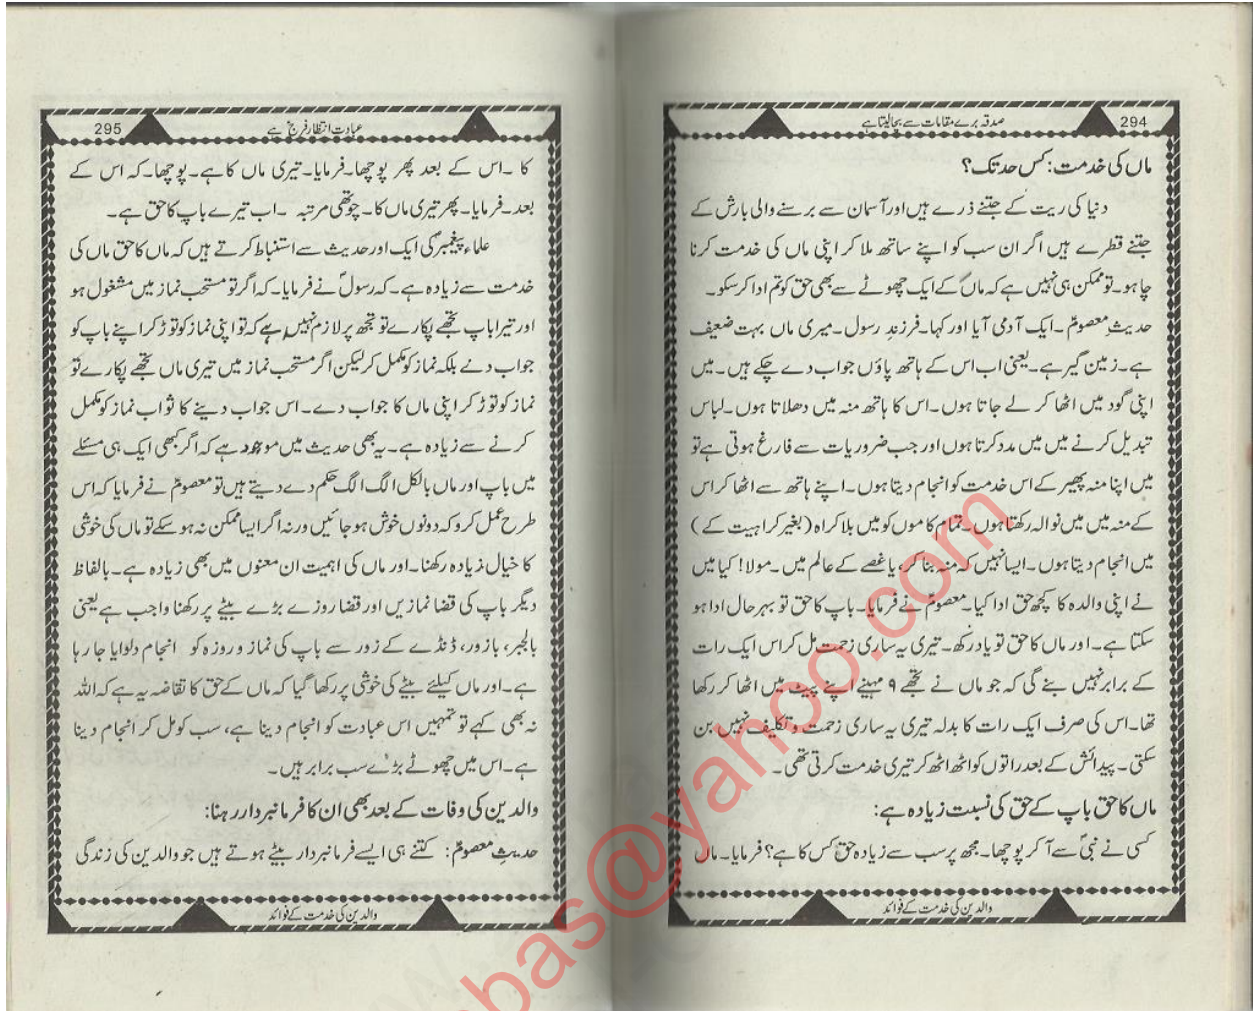 294
صدقہ برے مقامات سے بچالیتا ہے
ماں کی خدمت: کس حد تک؟
دنیا کی ریت کے جتنے ذرے ہیں اور آسمان سے برسنے والی بارش کے
جتنے قطرے ہیں اگر ان سب کو اپنے ساتھ ملا کر اپنی ماں کی خدمت کرنا
چاہو۔ تو ممکن ہی نہیں ہے کہ ماں کے ایک چھوٹے سے بھی حق کو تم ادا کر سکو۔
حدیثِ معصومؑ۔ ایک آدمی آیا اور کہا۔ فرزندِ رسول۔ میری ماں بہت ضعیف
ہے۔ زمین گیر ہے۔ یعنی اب اس کے ہاتھ پاؤں جواب دے چکے ہیں۔ میں
اپنی گود میں اٹھا کر لے جاتا ہوں۔ اس کا ہاتھ منہ میں دھلاتا ہوں۔ لباس
تبدیل کرنے میں میں مدد کرتا ہوں اور جب ضروریات سے فارغ ہوتی ہے تو
میں اپنا منہ پھیر کے اس خدمت کو انجام دیتا ہوں۔ اپنے ہاتھ سے اٹھا کر اس
کے منہ میں میں نوالہ رکھتا ہوں۔ تمام کاموں کو میں بلا کراہ (بغیر کراہیت کے)
میں انجام دیتا ہوں۔ ایسا نہیں کہ منہ بنا کر، یا غصے کے عالم میں۔ مولا! کیا میں
نے اپنی والدہ کا کچھ حق ادا کیا۔ معصومؑ نے فرمایا۔ باپ کا حق تو بہر حال ادا ہو
سکتا ہے۔ اور ماں کا حق تو یاد رکھ۔ تیری یہ ساری زحمت مل کر اس ایک رات
کے برابر نہیں بنے گی کہ جو ماں نے تجھے ۹ مہینے اپنے پیٹ میں اٹھا کر رکھا
تھا۔ اس کی صرف ایک رات کا بدلہ تیری یہ ساری زحمت و تکلیف نہیں بن
سکتی۔ پیدائش کے بعد راتوں کو اٹھ اٹھ کر تیری خدمت کرتی تھی۔
ماں کا حق باپ کے حق کی نسبت زیادہ ہے:
کسی نے نبیؐ سے آ کر پوچھا۔ مجھ پر سب سے زیادہ حق کس کا ہے؟ فرمایا۔ ماں
والدین کی خدمت کے فوائد
295
عبادت انتظار فرج ہے
کا۔ اس کے بعد پھر پوچھا۔ فرمایا۔ تیری ماں کا ہے۔ پوچھا۔ کہ اس کے
بعد۔ فرمایا۔ پھر تیری ماں کا۔ چوتھی مرتبہ۔ اب تیرے باپ کا حق ہے۔
علماء پیغمبرؐ کی ایک اور حدیث سے استنباط کرتے ہیں کہ ماں کا حق ماں کی
خدمت سے زیادہ ہے۔ کہ رسولؐ نے فرمایا۔ کہ اگر تو مستحب نماز میں مشغول ہو
اور تیرا باپ تجھے پکارے تو تجھ پر لازم نہیں ہے کہ تو اپنی نماز کو توڑ کر اپنے باپ کو
جواب دے بلکہ نماز کو مکمل کر لیکن اگر مستحب نماز میں تیری ماں تجھے پکارے تو
نماز کو توڑ کر اپنی ماں کا جواب دے۔ اس جواب دینے کا ثواب نماز کو مکمل
کرنے سے زیادہ ہے۔ یہ بھی حدیث میں موجود ہے کہ اگر کبھی ایک ہی مسئلے
میں باپ اور ماں بالکل الگ الگ حکم دے دیتے ہیں تو معصومؑ نے فرمایا کہ اس
طرح عمل کرو کہ دونوں خوش ہو جائیں ورنہ اگر ایسا ممکن نہ ہو سکے تو ماں کی خوشی
کا خیال زیادہ رکھنا۔ اور ماں کی اہمیت ان معنوں میں بھی زیادہ ہے۔ بالفاظ
دیگر باپ کی قضا نمازیں اور قضا روزے بڑے بیٹے پر رکھنا واجب ہے یعنی
بالجبر، بازور، ڈنڈے کے زور سے باپ کی نماز و روزہ کو انجام دلوایا جا رہا
ہے۔ اور ماں کیلئے بیٹے کی خوشی پر رکھا گیا کہ ماں کے حق کا تقاضہ یہ ہے کہ اللہ
نہ بھی کہے تو تمہیں اس عبادت کو انجام دینا ہے، سب کو مل کر انجام دینا
ہے۔ اس میں چھوٹے بڑے سب برابر ہیں۔
والدین کی وفات کے بعد بھی ان کا فرمانبردار رہنا:
حدیثِ معصومؑ: کتنے ہی ایسے فرمانبردار بیٹے ہوتے ہیں جو والدین کی زندگی
والدین کی خدمت کے فوائد
bas@yahoo.com